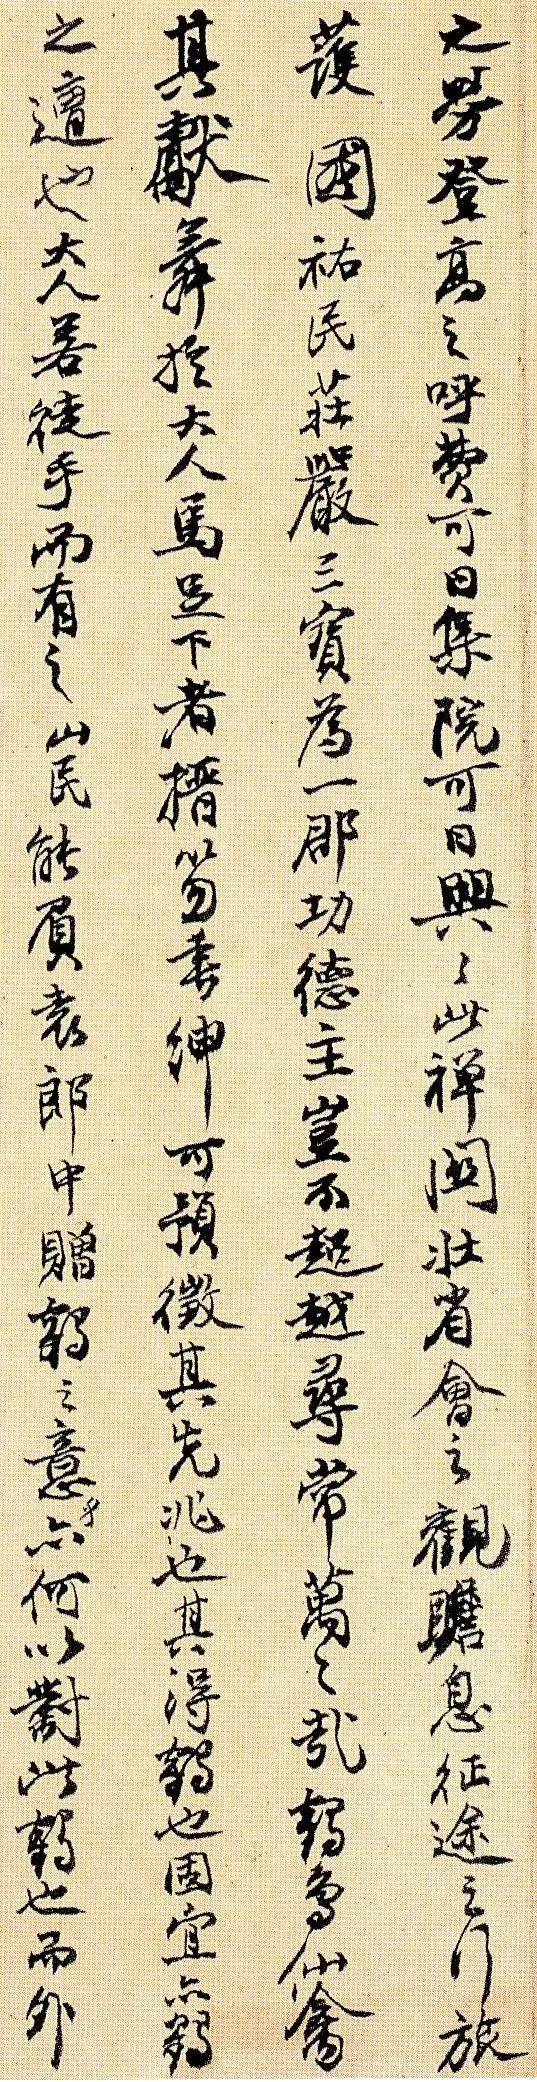 之勞登高之呼費可日集院可日興々此禅関壮省會之觀瞻息征途之行旅
護國祐民莊嚴三寳為一郡功德主豈不超越尋常萬々哉鶴為仙禽
其獻舞於大人馬足下者搢笏垂紳可預徵其先兆也其得鶴也固宜亦鶴
之遭也大人若徒手而有之山民能負袁郎中贈鶴之意乎亦何以對此鶴也而外